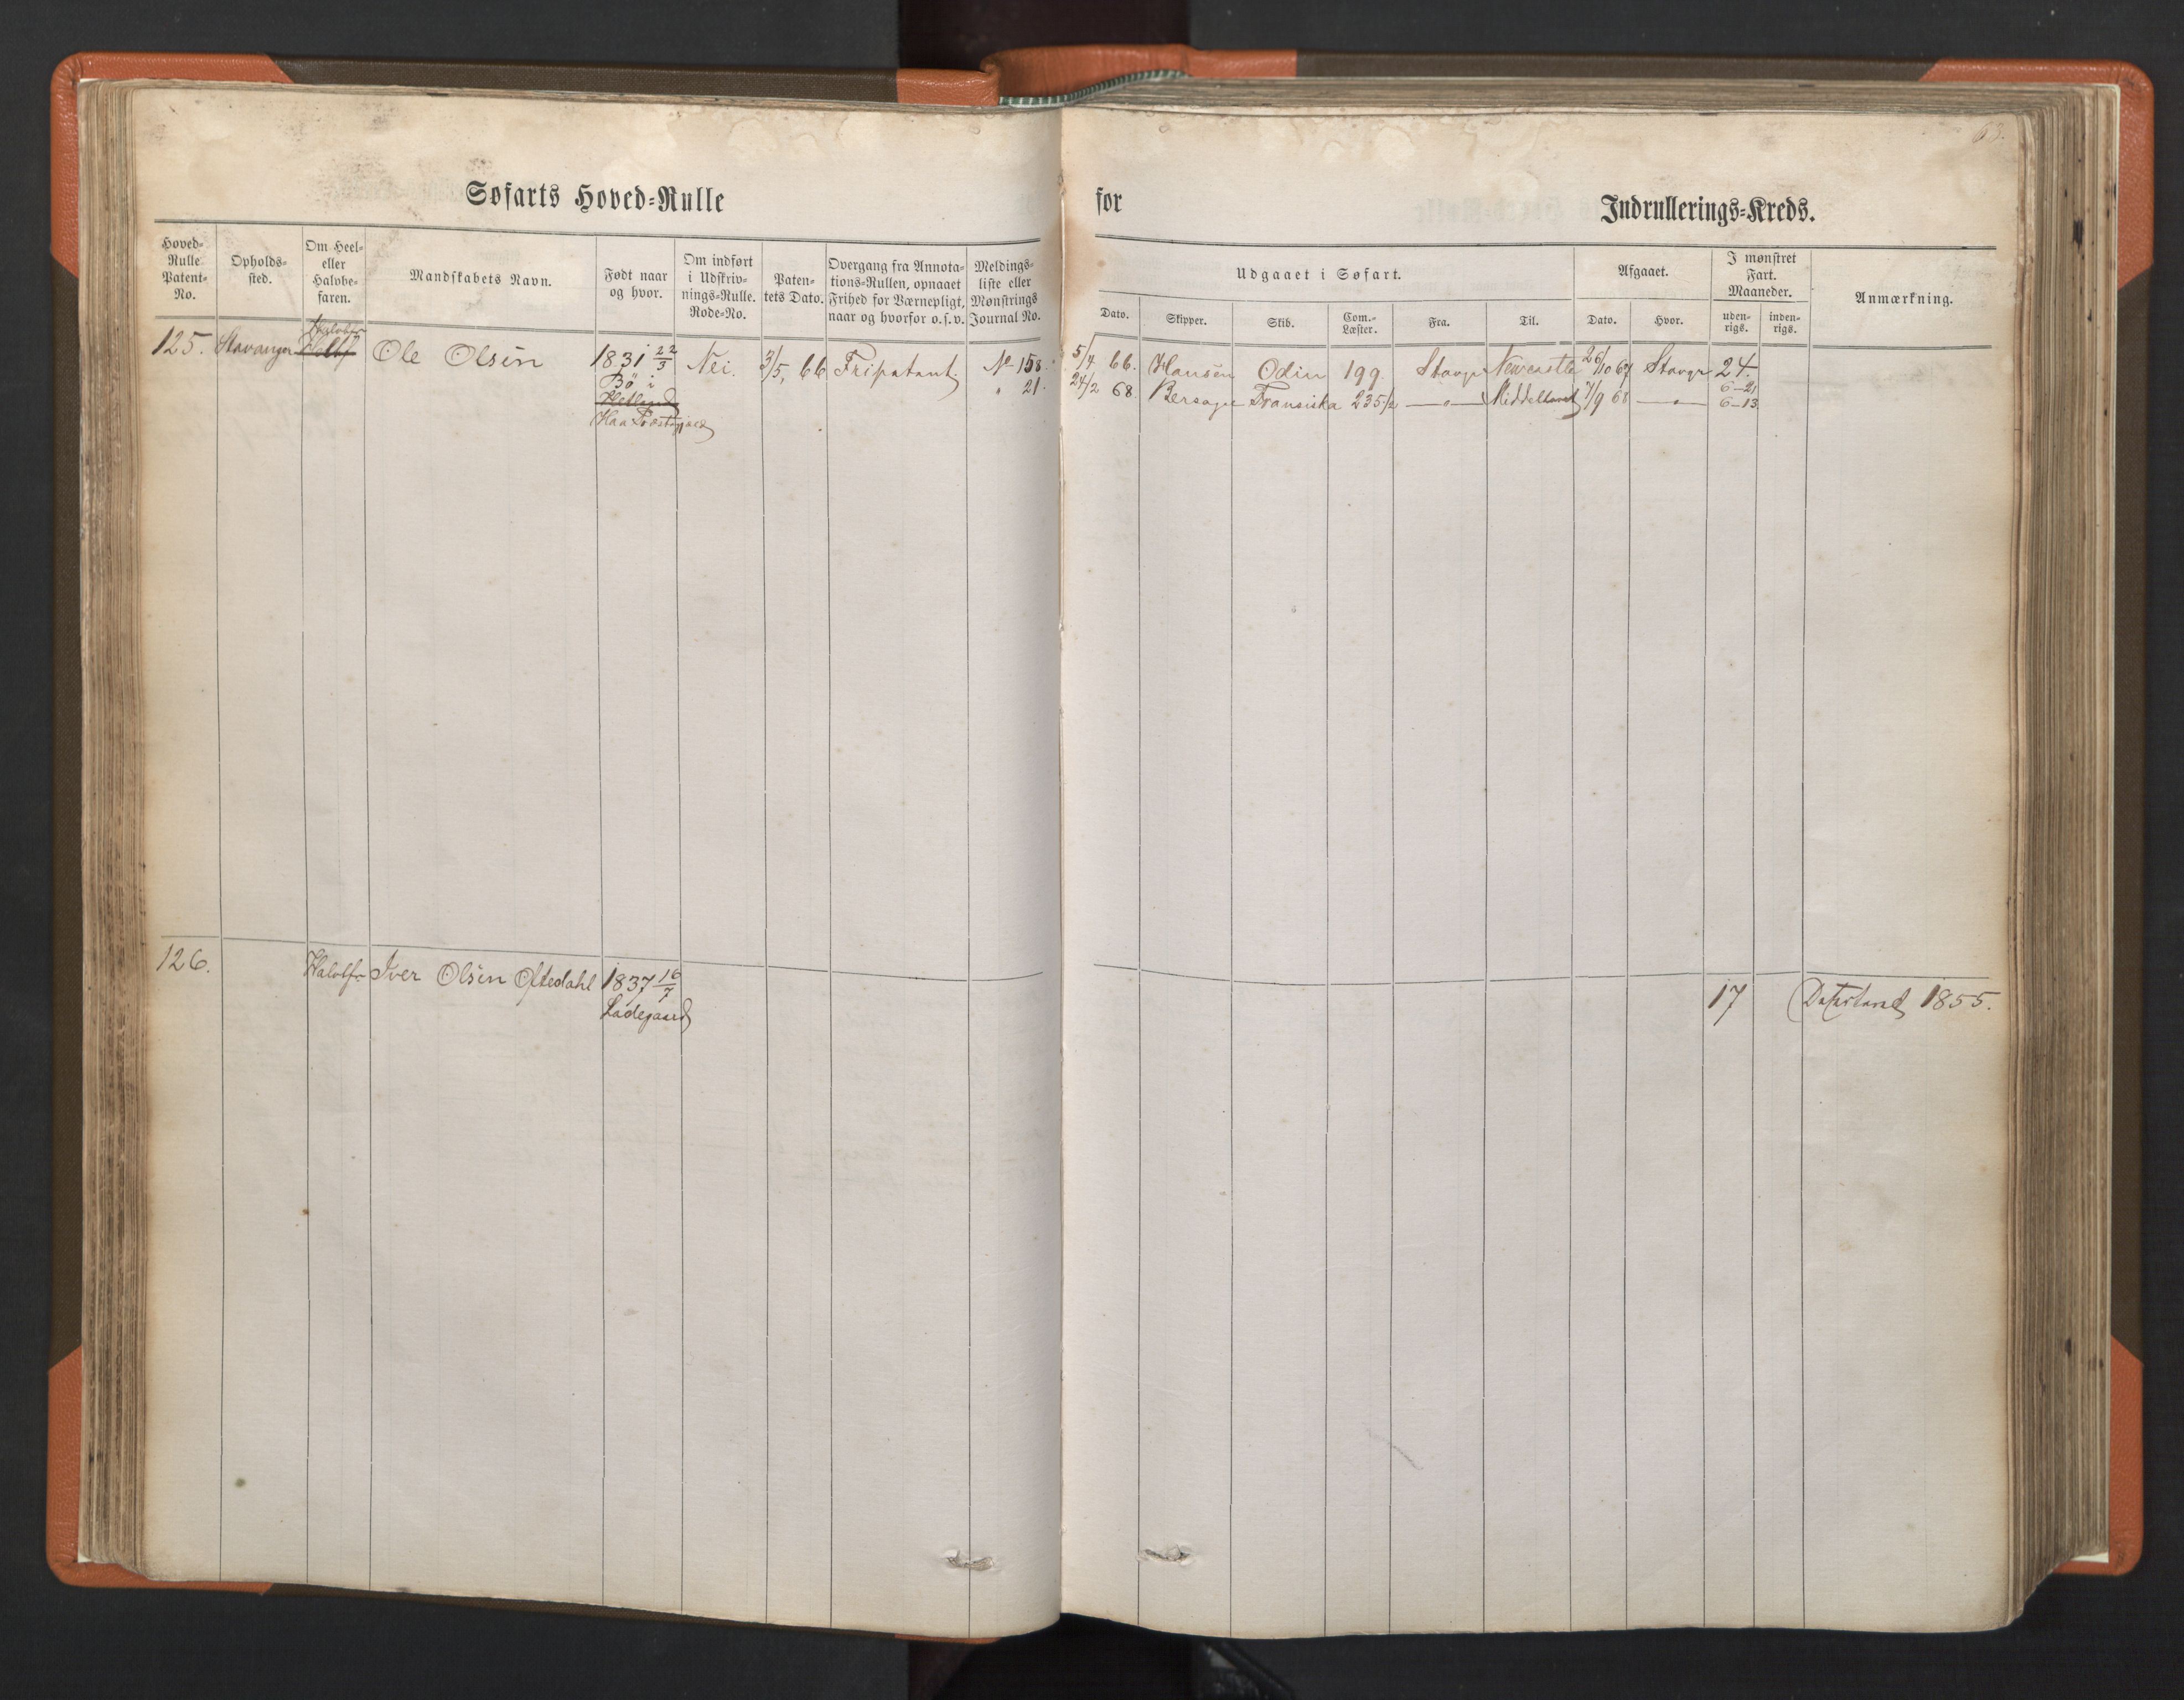 63.
Søfarts Hoved-Rulle for Indrullerings-Kreds.
Hoved-Rulle Patent-No.
Opholds-sted.
Om Heel- eller Halvbe-faren.
Mandskabets Navn.
Født naar og hvor.
Om indført i Udskriv-nings-Rulle. Rode-No.
Paten-tets Dato.
Overgang fra Annota-tions-Rullen, opnaaet Frihed for Værnepligt, naar og hvorfor o. s. v.
Meldings-liste eller Mønstrings Journal No.
Udgaaet i Søfart.
Dato.
Skipper.
Skib.
Com.-Læster.
Fra.
Til.
Afgaaet.
Dato.
Hvor.
I mønstret Fart. Maaneder.
uden-rigs.
inden-rigs.
Anmærkning.
Halvbfr
125. Stavanger Ole Olsen 1831 22/3 Nei. 3/5, 66 Fripatent No 158. 5/4 66. Hansen Odin 199. Stavgr Newcastle 26/10 67 Stavgr 24.
Bø i
6-21
Hetland " 21. 24/2 68. Bersagn Fransiska 235 1/2 —"— Middelhavet 7/9 68 —"— 6-13
Haa Præstegjæld
126. Halvbfr Iver Olsen Oftedahl 1837 16/7 17 1855.
Ladegaard